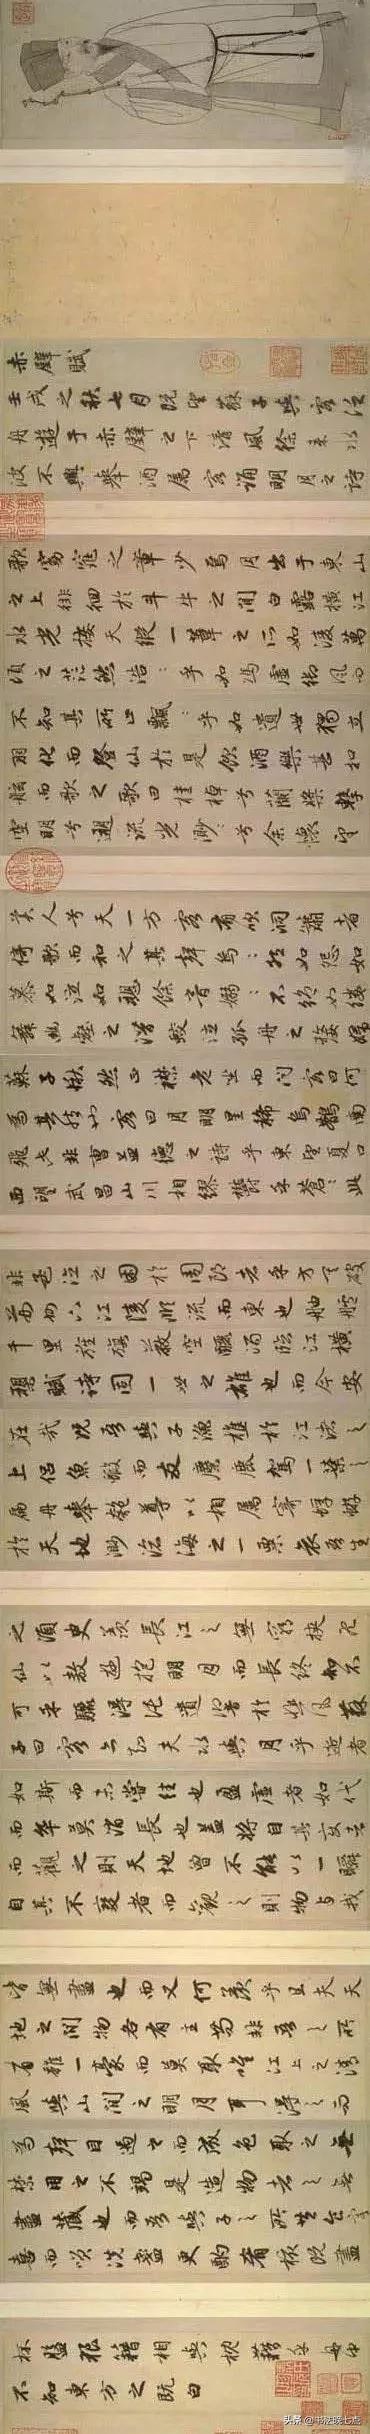 赤壁賦
壬戌之秋七月既望蘇子與客泛
舟遊于赤壁之下清風徐来水
波不興舉酒属客誦明月之詩
歌窈窕之章少焉月出于東山
之上徘徊於斗牛之間白露橫江
水光接天縱一葦之所如凌萬
頃之茫然浩:乎如馮虚御風而
不知其所止飄:乎如遺世獨立
羽化而登仙於是飲酒樂甚扣
舷而歌之歌曰桂棹兮蘭槳擊
空明兮遡流光渺:兮余懷望
美人兮天一方客有吹洞蕭者
倚歌而和之其聲烏:然如怨如
慕如泣如訴餘音嫋:不絶如縷
舞幽壑之潛蛟泣孤舟之嫠婦
蘇子愀然正襟危坐而問客曰何
為其然也客曰月明星稀烏鵲南
飛此非曹孟德之詩乎東望夏口
西望武昌山川相繆鬱乎蒼:此
非孟德之困於周郎者乎方其破
荊州下江陵順流而東也舳艫
千里旌旗蔽空釃酒臨江橫
槊賦詩固一世之雄也而今安
在哉况吾與子漁樵於江渚之
上侶魚蝦而友麋鹿駕一葉之
扁舟舉匏尊以相属寄蜉蝣
於天地渺滄海之一粟哀吾生
之須臾羨長江之無窮挾飛
仙以敖遊抱明月而長終知不
可乎驟得託遺響於悲風蘇
子曰客亦知夫水與月乎逝者
如斯而未嘗往也盈虚者如代
而卒莫消長也蓋將自其變者
而觀之則天地曾不能以一瞬
自其不變者而觀之則物與我
皆無盡也而又何羨乎且夫天
地之間物各有主苟非吾之所
有雖一豪而莫取惟江上之清
風與山間之明月耳得之而
為聲目遇之而成色取之無
禁用之不竭是造物者之無
盡藏也而吾與子之所共食客
喜而笑洗盞更酌肴核既盡
杯盤狼藉相與枕藉乎舟中
不知東方之既白
头条@书法晚七点